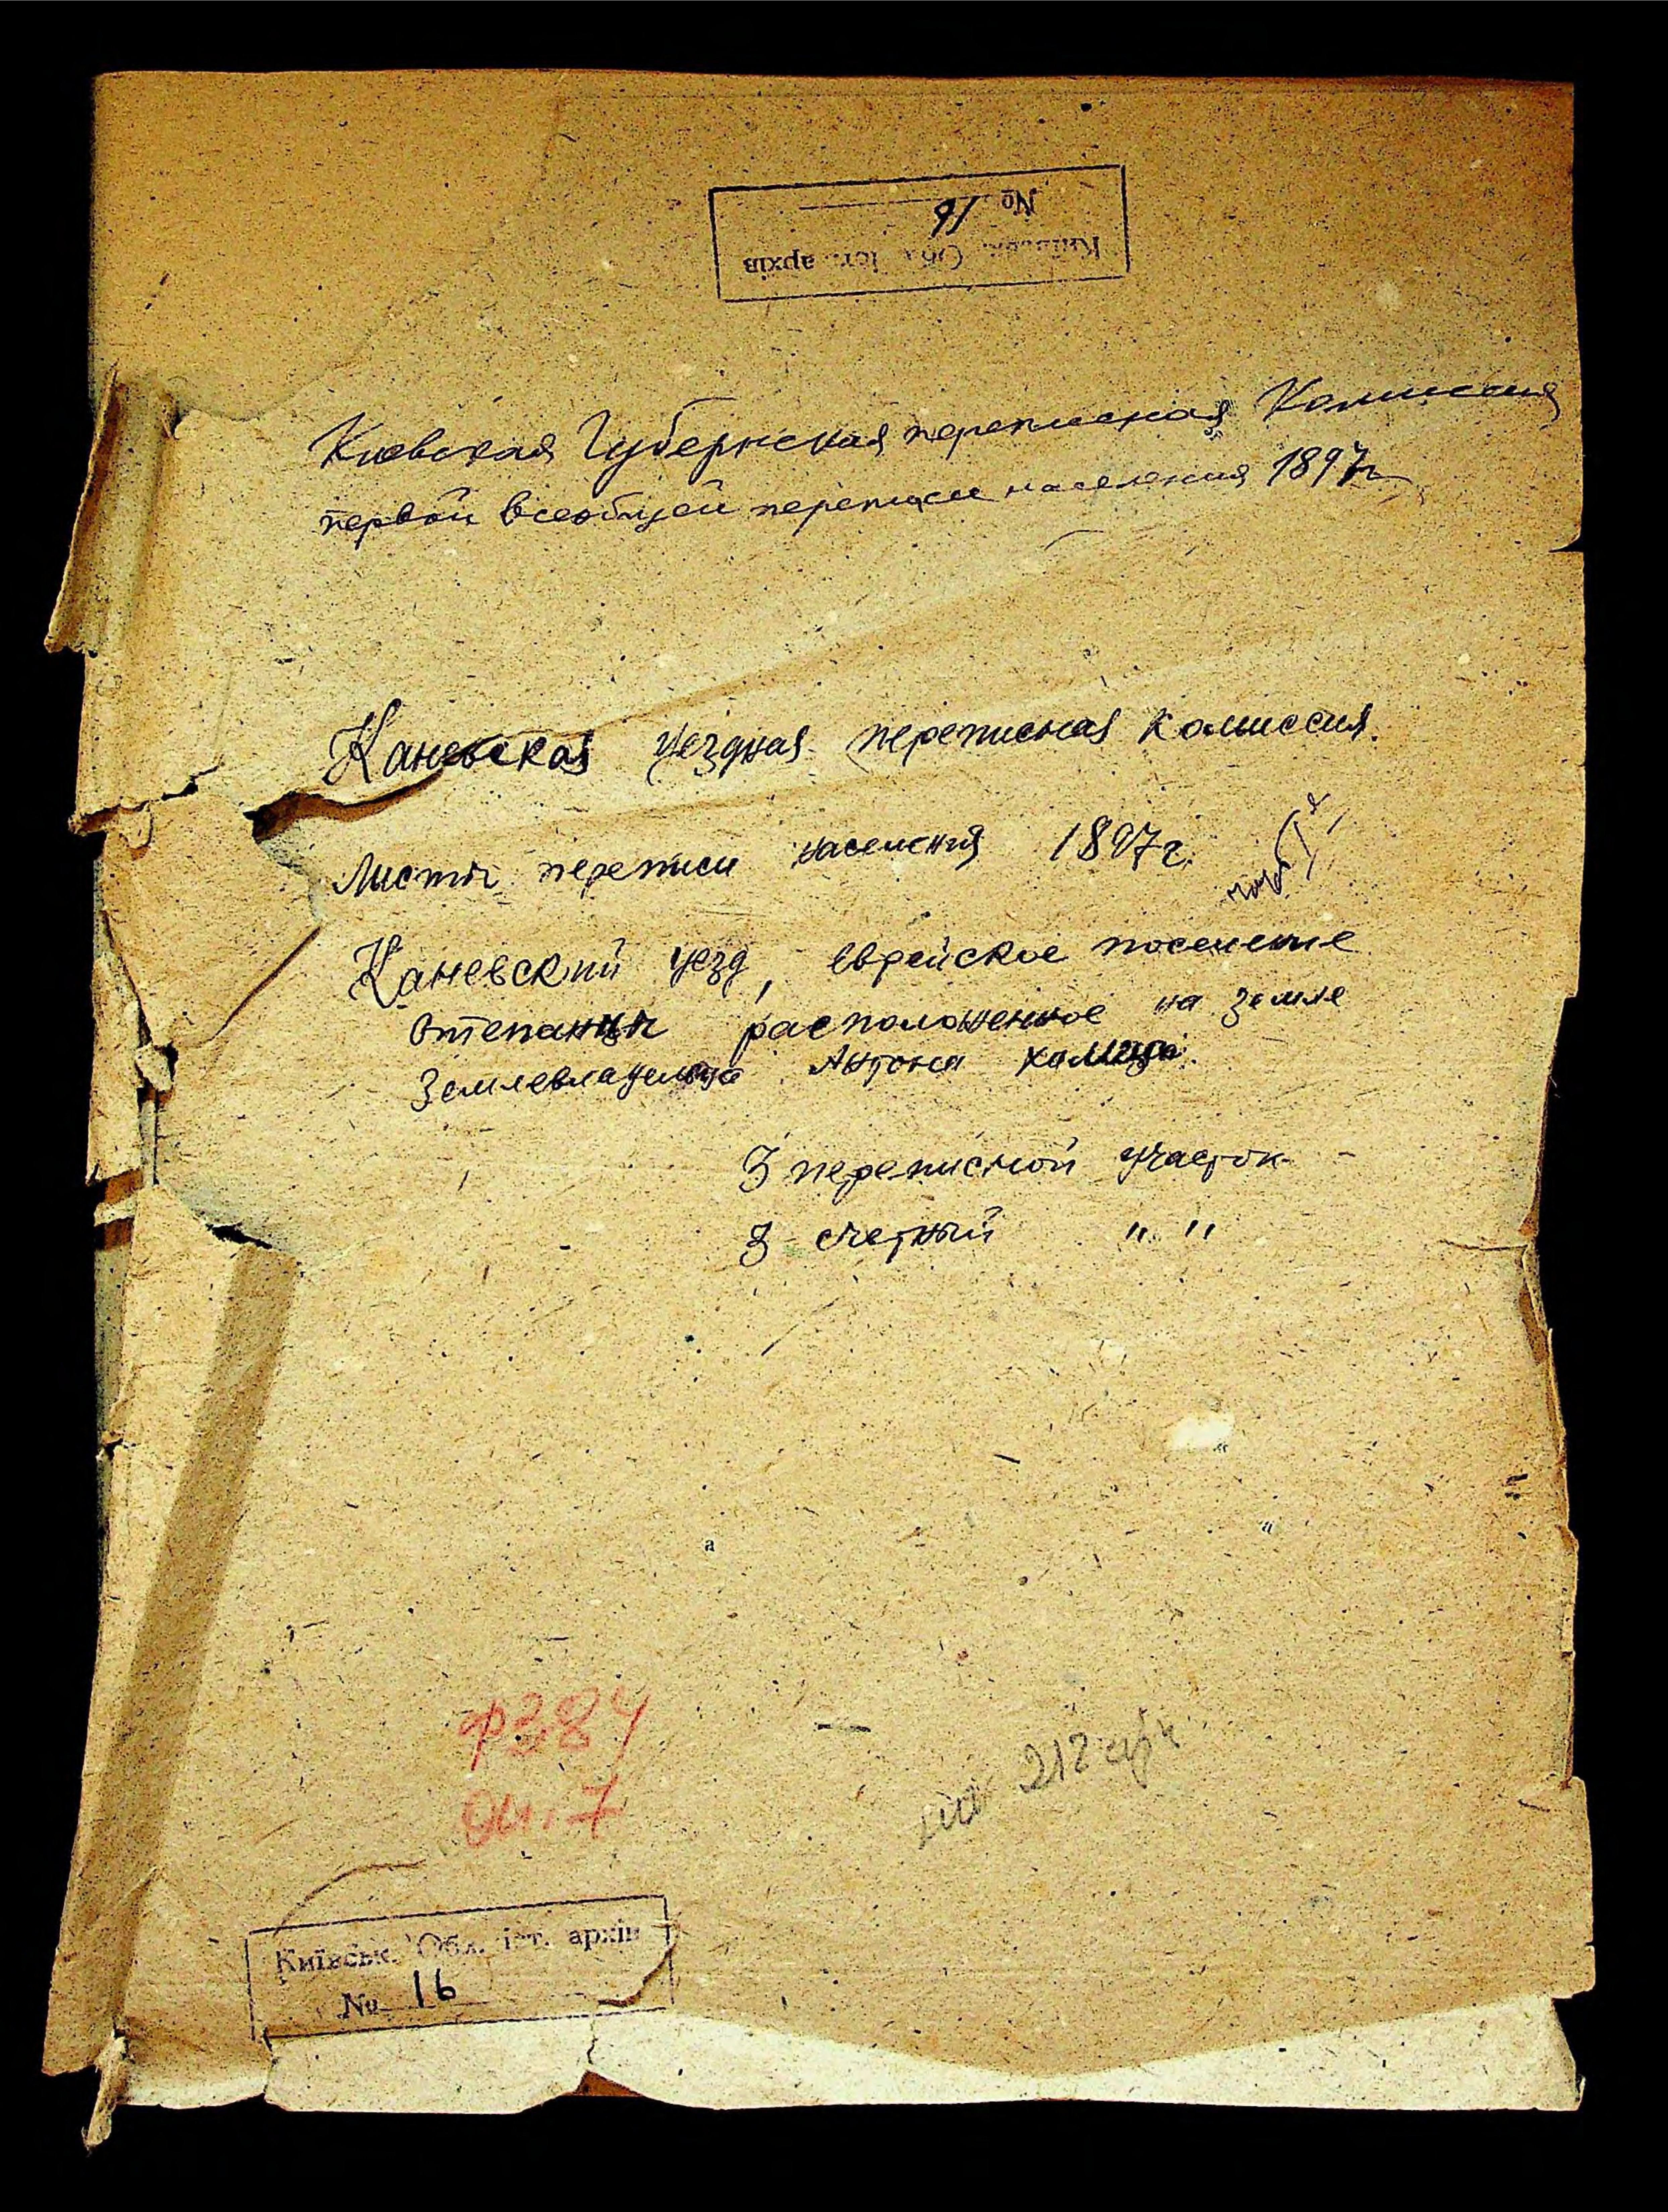 № 16
Київськ. Обл. іст. архів
Киевская Губернская переписная Комиссия
первой всеобщей переписи населения 1897 г
Каневская уездная переписная комиссия.
Листы переписи населения 1897 г.
Каневский уезд, еврейское поселение
Степанцы расположенное на земле
Землевладельца Антона
3 переписной участок
3 счетный " "
ф 384
оп. 7
212
Київськ. Обл. іст. архів
№ 16